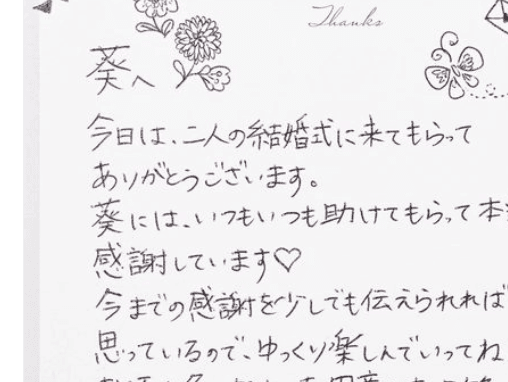 Thanks
葵へ
今日は、二人の結婚式に来てもらって
ありがとうございます。
葵には、いつもいつも助けてもらって本
感謝しています♡
今までの感謝を少しでも伝えられれば
思っているので、ゆっくり楽しんでいってね